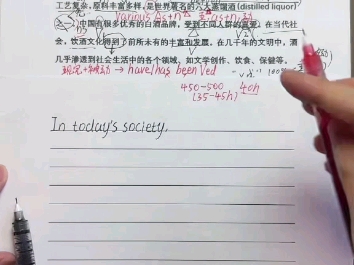 工艺复杂,原料丰富多样,是世界著名的六大蒸馏酒(distilled liquor)
Various As+n
之一。中国有很多优秀的白酒品牌,受到不同人群的喜爱。在当代社
会,饮酒文化得到了前所未有的丰富和发展。在几千年的文明中,酒
几乎渗透到社会生活中的各个领域,如文学创作、饮食、保健等。
现完+被动 → have/has been Ved
100%
450-500 40h
(35-45h)
In today's society,